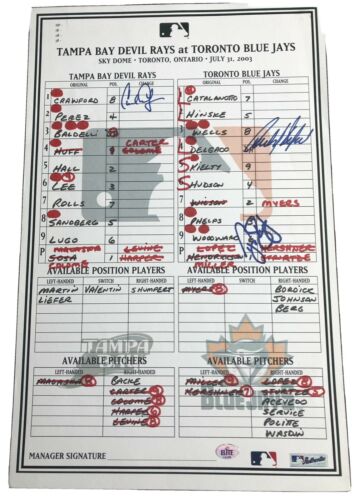 TAMPA BAY DEVIL RAYS at TORONTO BLUE JAYS
SKY DOME • TORONTO, ONTARIO • JULY 31, 2003
TAMPA BAY DEVIL RAYS
ORIGINAL POS. CHANGE
1 CRAWFORD 8
2 PEREZ 4
3 BALDELLI
4 HUFF CARTER COLOME
5 HALL 2
6 LEE 3
7 ROLLS 7
8 SANDBERG 5
9 LUGO 6
P LEVINE
SOSA 1 HARPER
COLOME
TORONTO BLUE JAYS
ORIGINAL POS. CHANGE
CATALANOTTO 7
HINSKE 5
WELLS 8
DELGADO
KIELTY 9
HUDSON 4
WILSON 2 MYERS
PHELPS
WOODWARD
P LOPEZ KERSHNER
HENDRICKSON STURTZE
MILLER
AVAILABLE POSITION PLAYERS
LEFT-HANDED SWITCH RIGHT-HANDED
MARTIN VALENTIN SHUMPERT
LIEFER
AVAILABLE POSITION PLAYERS
LEFT-HANDED SWITCH RIGHT-HANDED
MYERS BORDICK
JOHNSON
BERG
TAMPA
AVAILABLE PITCHERS
LEFT-HANDED RIGHT-HANDED
BACKE
CARTER
COLOME
HARPER
LEVINE
BLUE JAYS
AVAILABLE PITCHERS
LEFT-HANDED RIGHT-HANDED
MILLER LOPEZ
KERSHNER STURTZE
ACEVEDO
SERVICE
POLITTE
WASDIN
MANAGER SIGNATURE
ELITE
Authentic